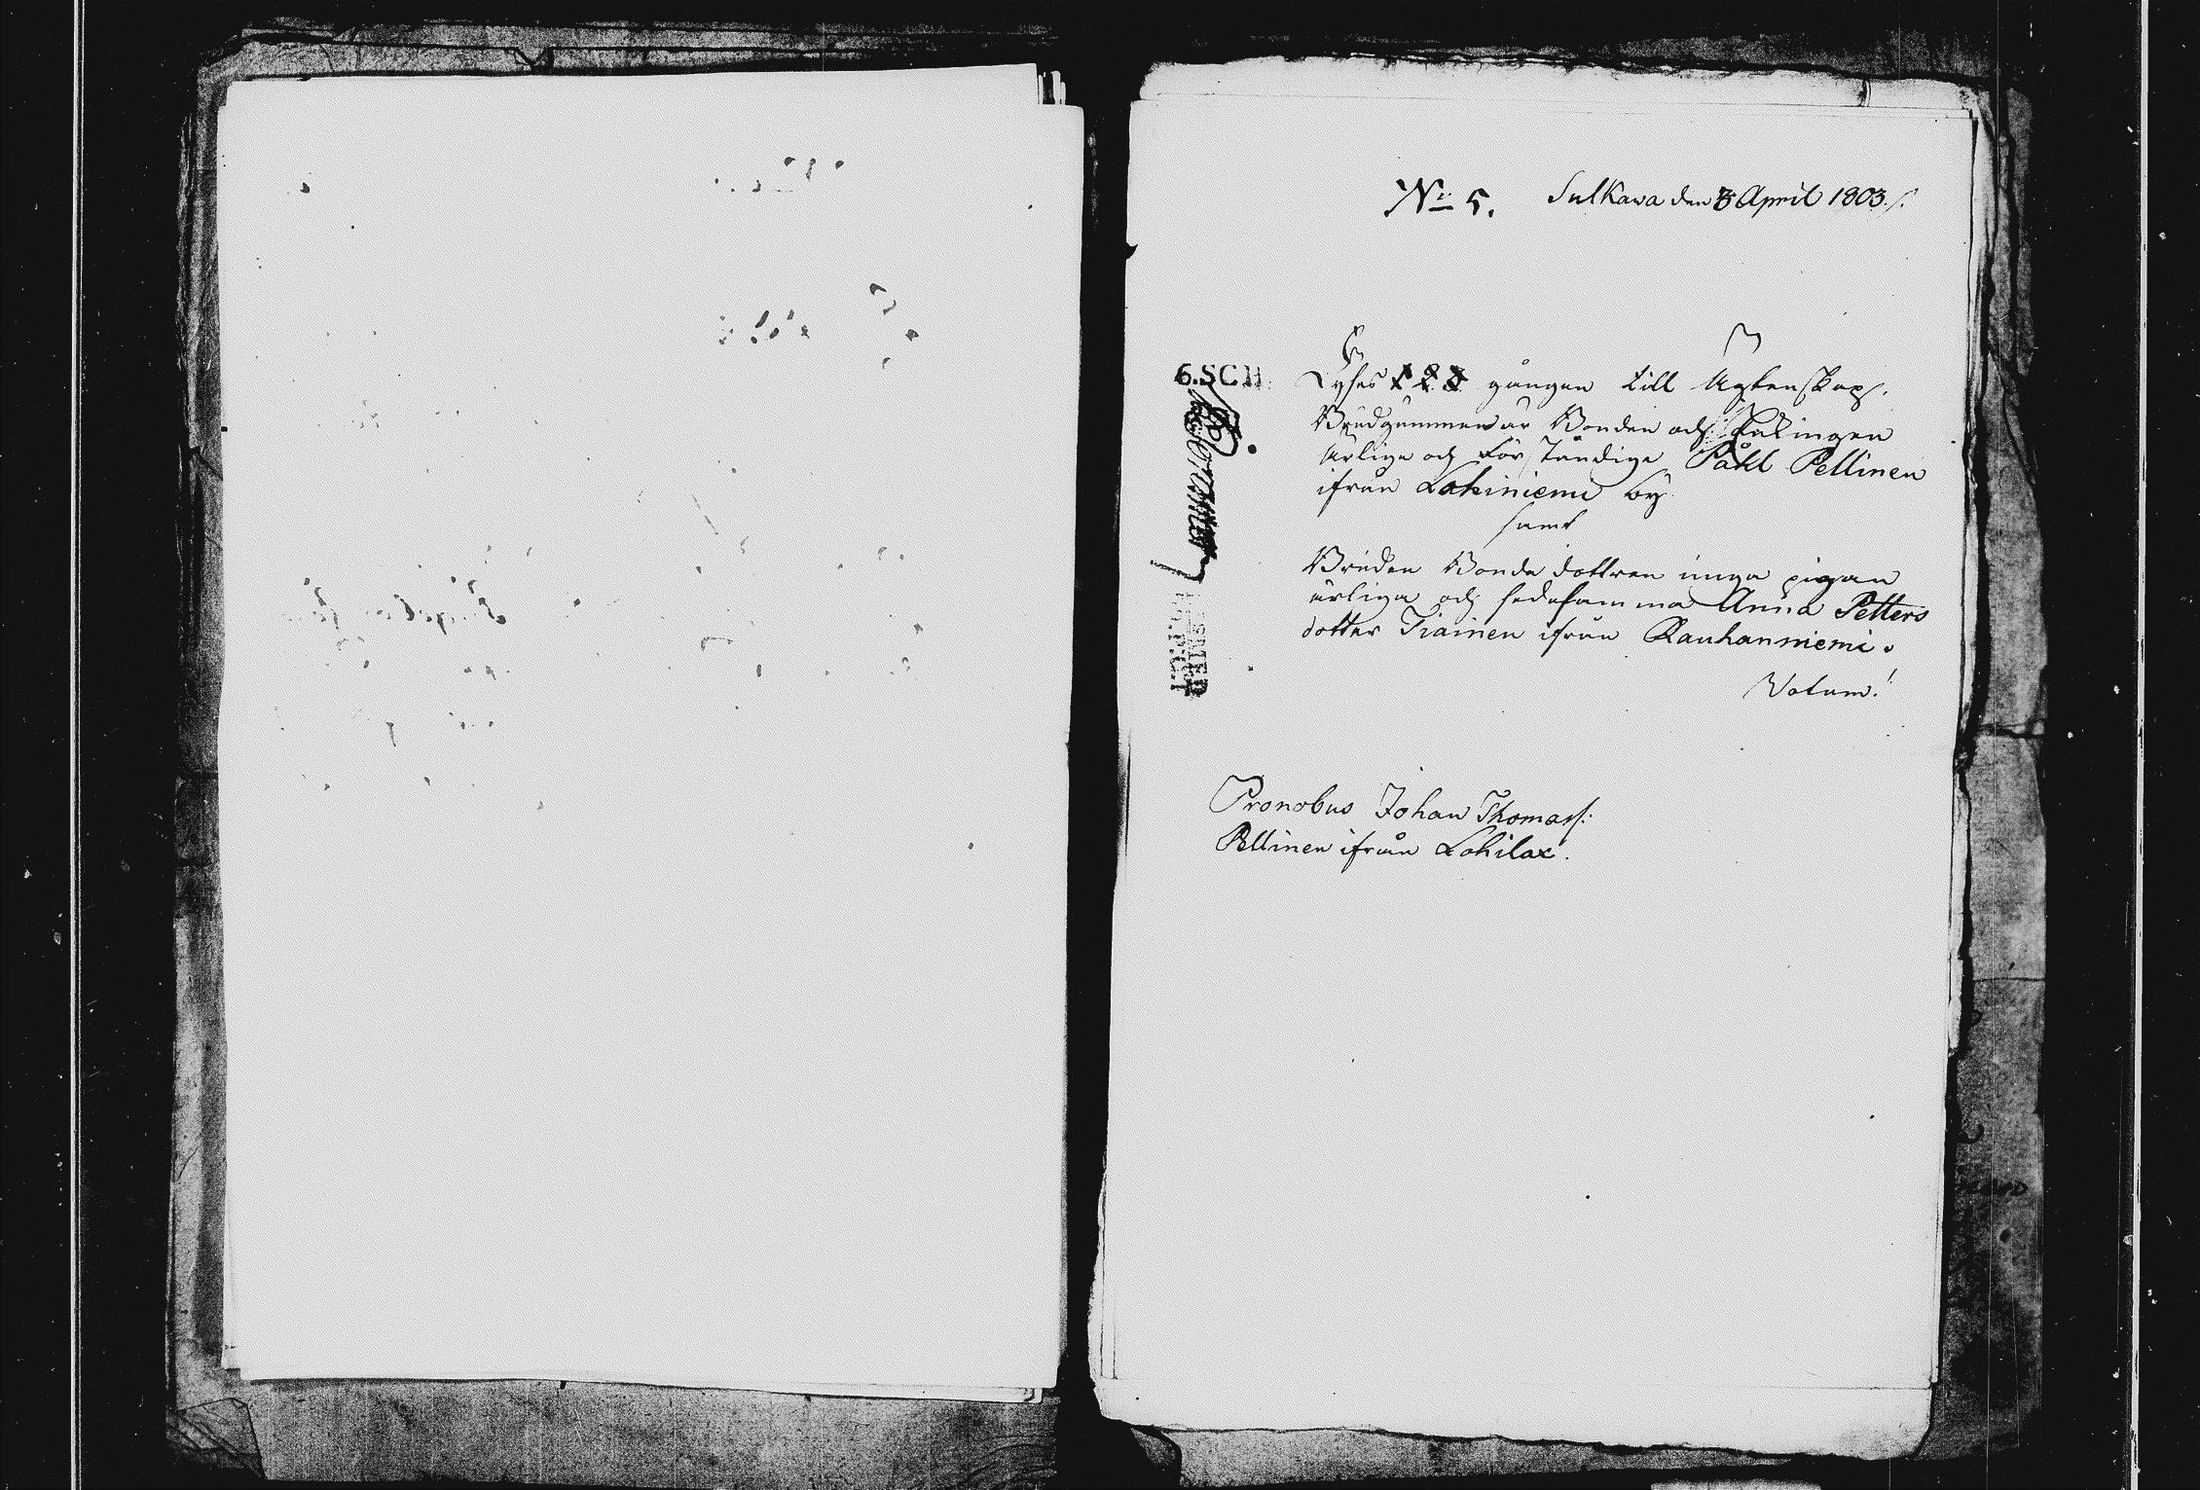 No 5. Sulkava den 3 April 1803.
6.SCH
Lyses 1 2 3 gången till Ägtenskap.
Brudgummen är Bonden och Enklingen
ärlige och förståndige Påhl Pellinen
ifrån Lohiniemi by
samt
Bruden Bonde dottren unga pigan
ärliga och sedesamma Anna Petters
dotter Tiainen ifrån Rauhanniemi.
Votum!
Pronobus Johan Thomass:
Pellinen ifrån Lohilax.